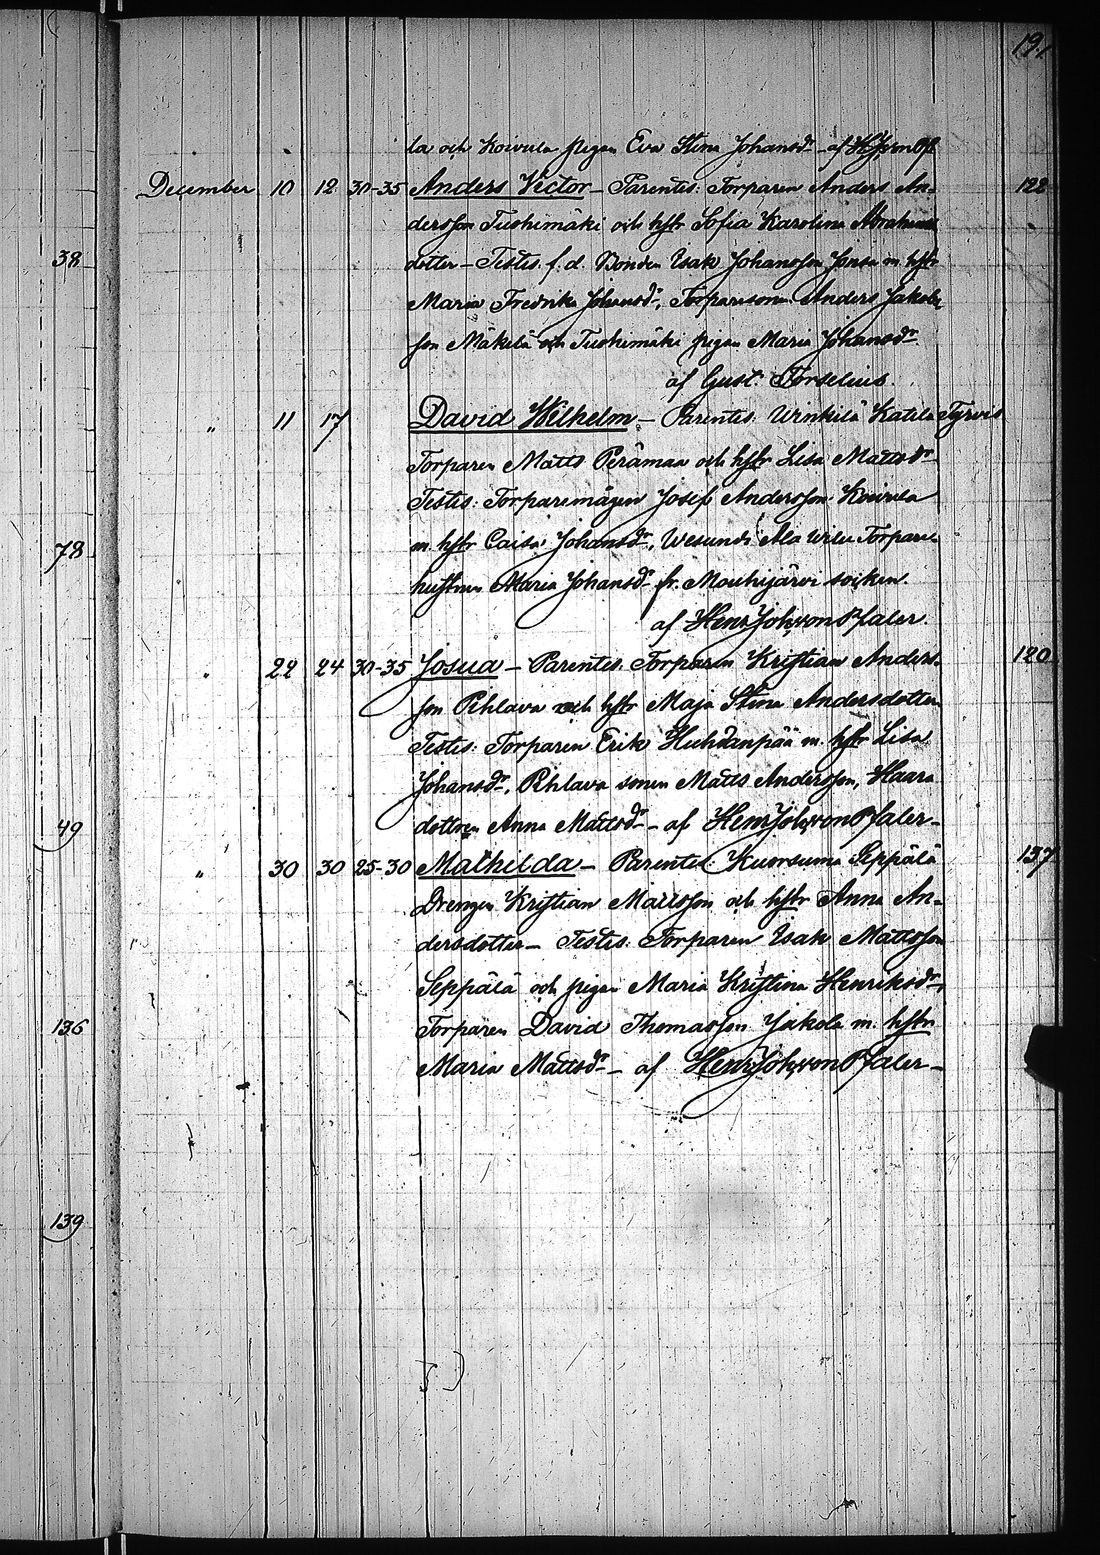 191
la och Koivula pigan Eva Stina Johansdr - af HJvonPf.
December 10 12 30-35 Anders Victor - Parentes: Torparen Anders An- 122
dersson Tuohimäki och hstr Sofia Karolina Abrahams
38
dotter - Testes: f.d. Bonden Isak Johansson Jansa m. hstr
Maria Fredrika Johansdr, Torparesonen Anders Jakobs
son Mäkelä och Tuohimäki pigan Maria Johansdr.
af Gust. Forselius.
" 11 17 David Wilhelm - Parentes: Winkilä Katila Tyrvis
Torparen Matts Perämaa och hstr Lisa Mattsdr
Testes: Torparemågen Josef Andersson Koivula
78
m. hstr Caisa Johansdr, Wesunds Ala Torpare
hustrun Maria Johansdr fr. Mouhijärvi socken.
af HenrJohvonPfaler.
" 22 24 30-35 Josua - Parentes: Torparen Kristian Anders- 120
son Pihlava och hstr Maja Stina Andersdotter
Testes: Torparen Erik Huhdanpää m. hstr Lisa
Johansdr, Pihlava sonen Matts Andersson, Haara
49
dottren Anna Mattsdr - af HenrJohvonPfaler -
" 30 30 25-30 Mathilda - Parentes: Kuorsuma Seppälä 137
Drengen Kristian Mattsson och hstr Anna An-
dersdotter - Testes: Torparen Isak Mattsson
Seppälä och pigan Maria Kristina Henriksdr,
136
Torparen David Thomasson Jakola m. hstr
Maria Mattsdr - af HenrJohvonPfaler -
139